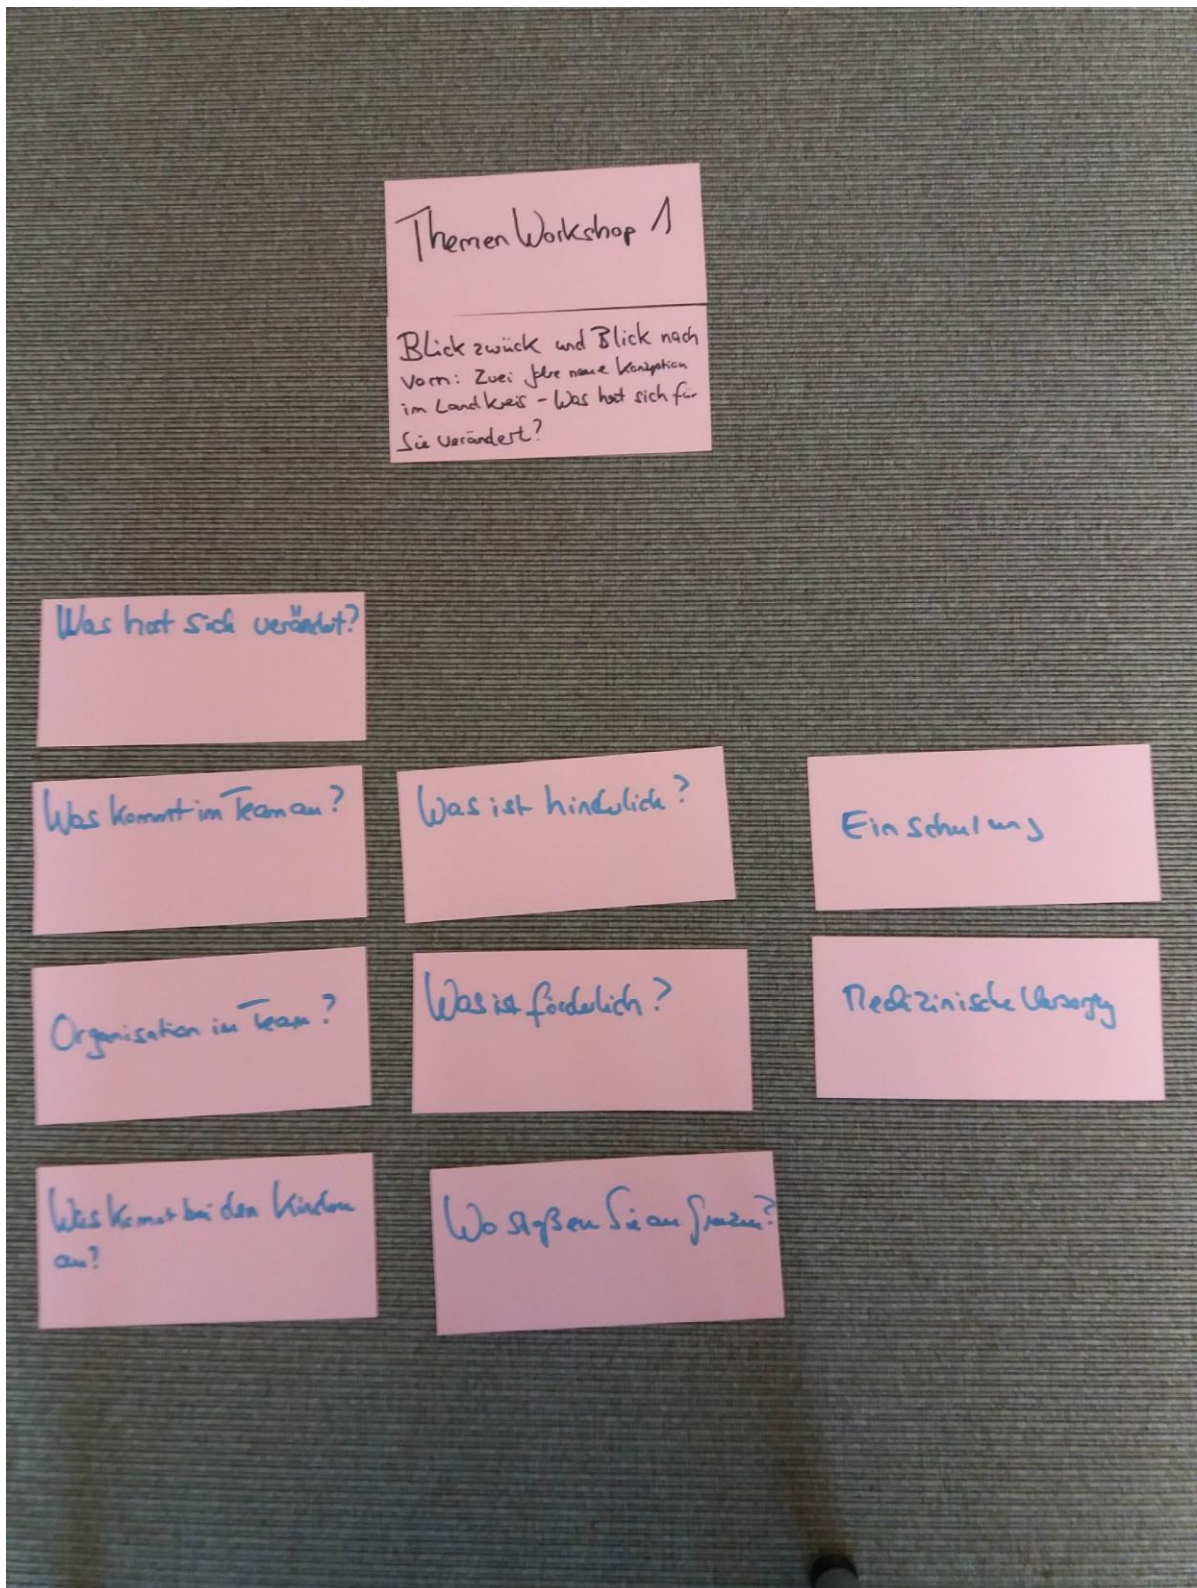 Themen Workshop 1
Blick zurück und Blick nach
vorn: Zwei Jahre neue Konzeption
im Landkreis - Was hat sich für
Sie verändert?
Was hat sich verändert?
Was kommt im Team an?
Organisation im Team?
Was kommt bei den Kindern
an?
Was ist hinderlich?
Was ist förderlich?
Wo stoßen Sie an Grenzen?
Einschulung
Medizinische Versorgung